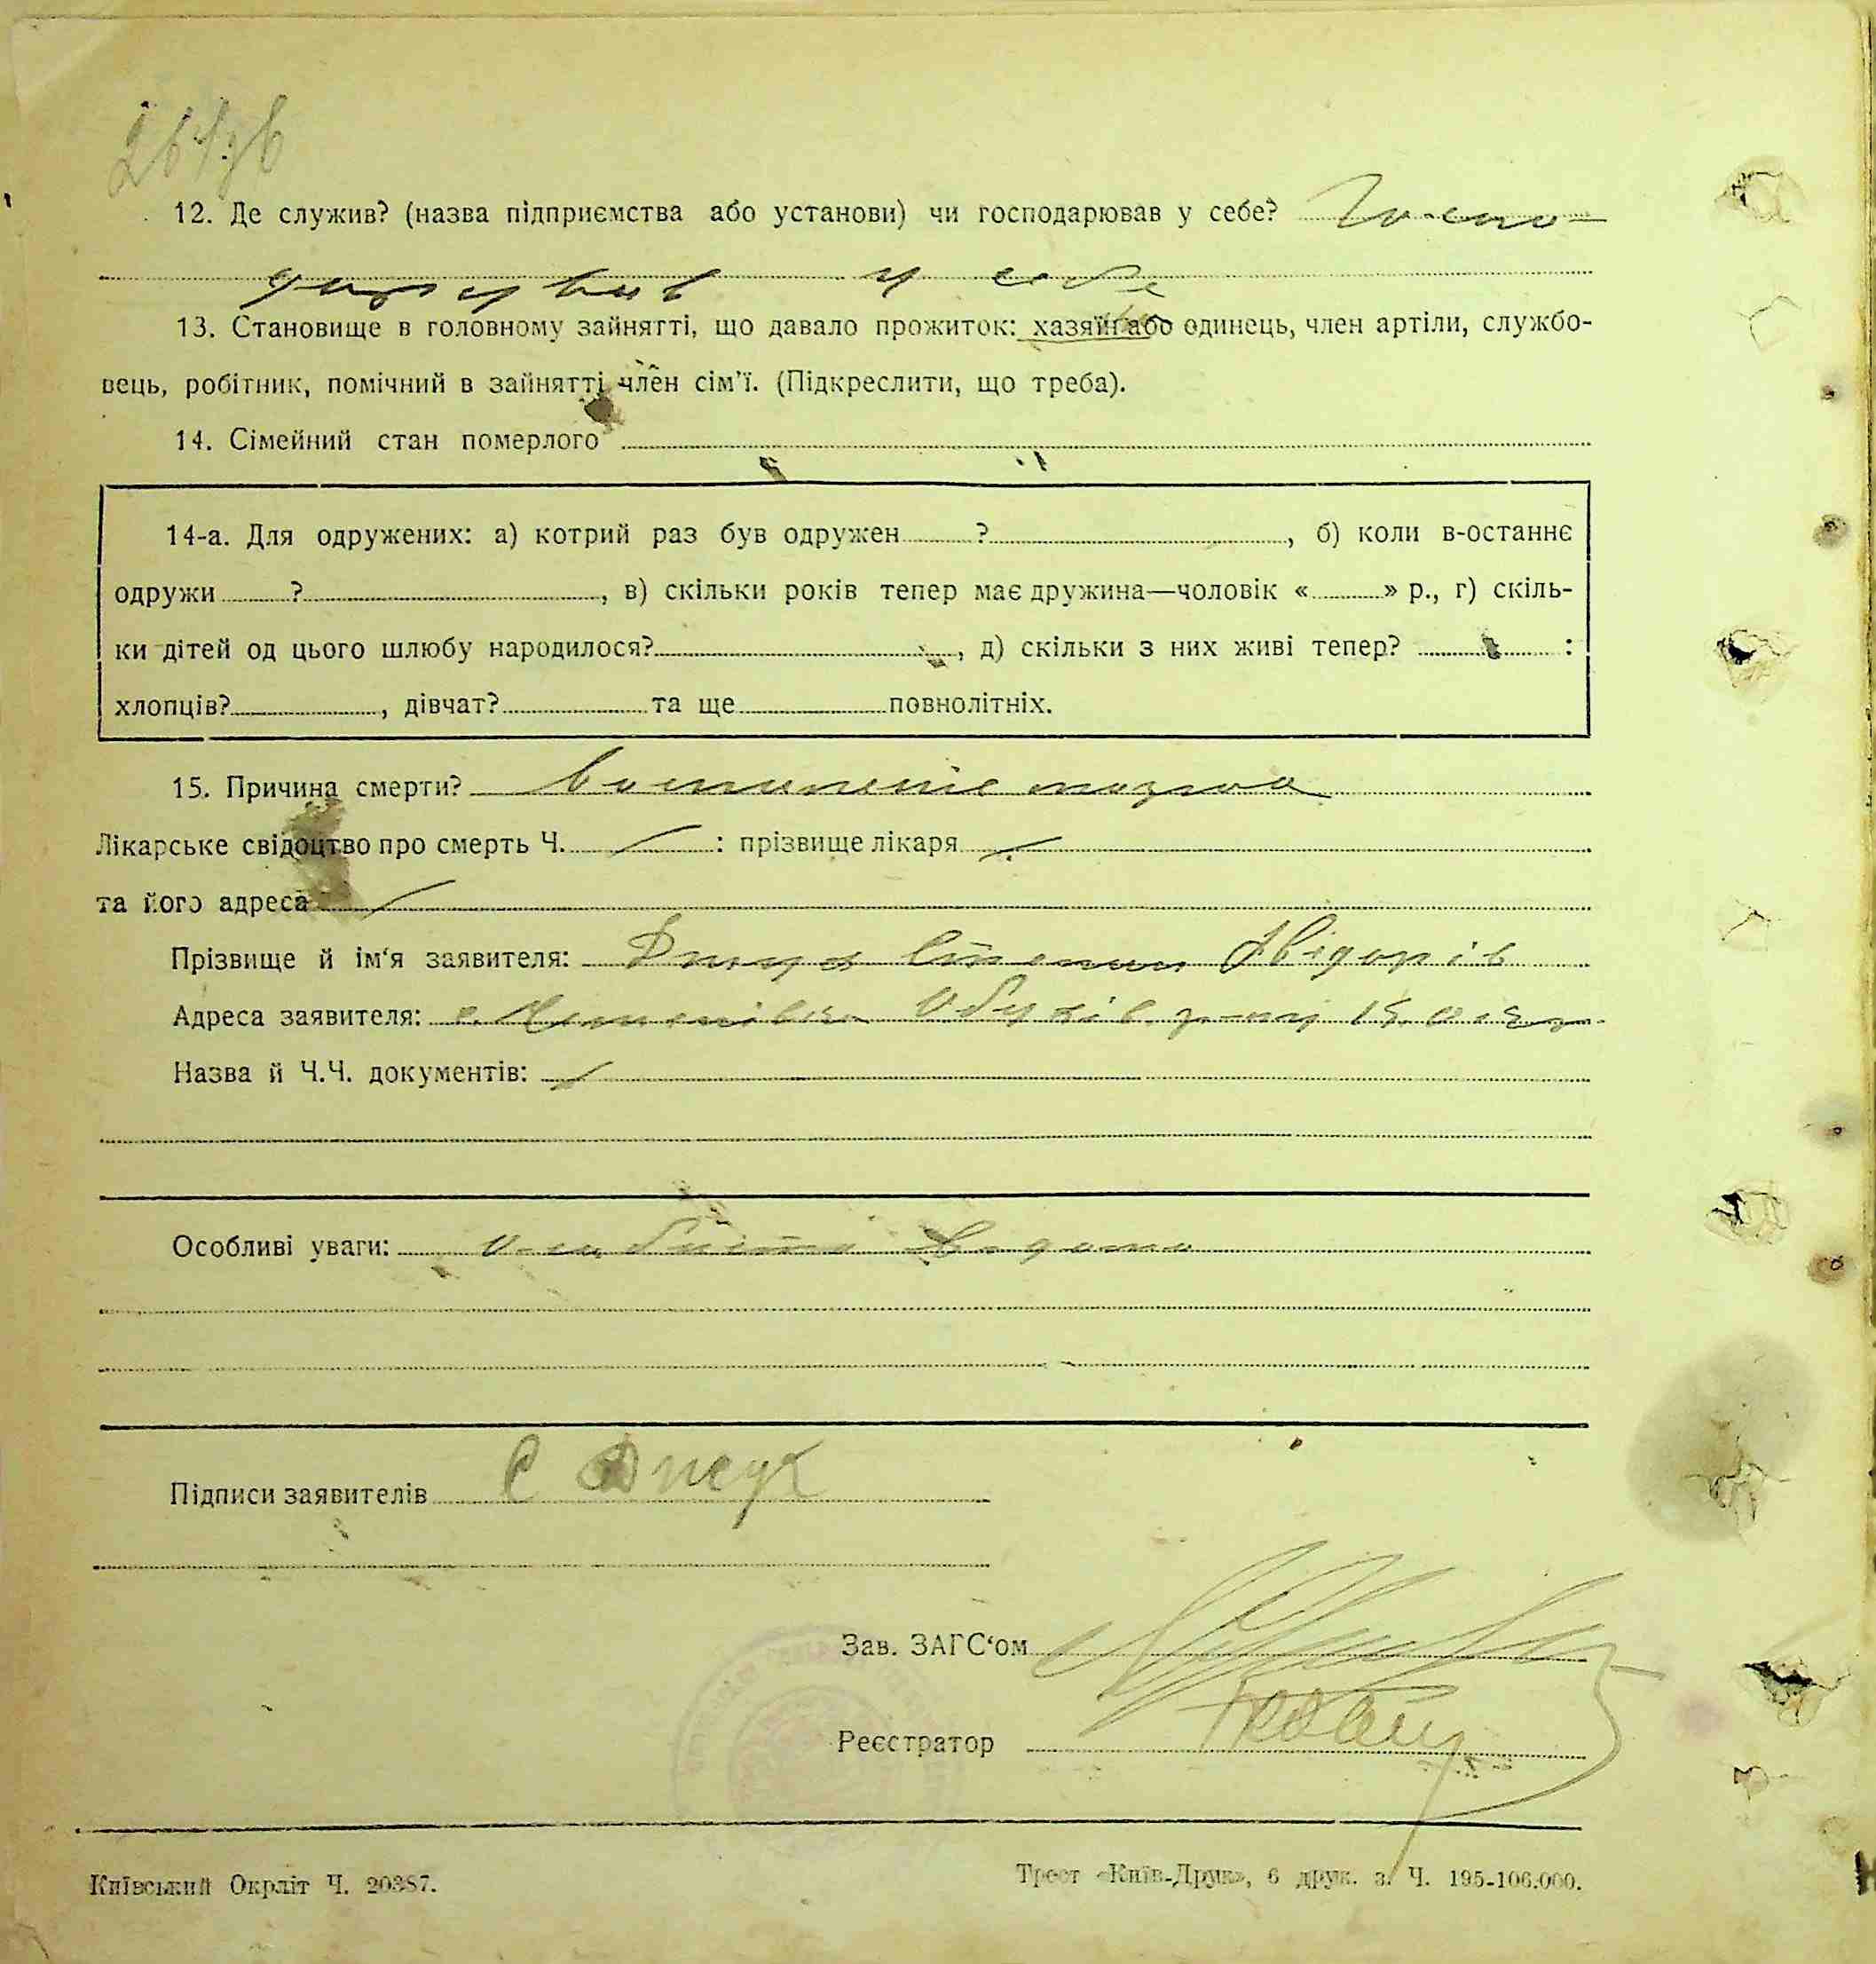 12. Де служив? (назва підприємства або установи) чи господарював у себе? Госпо-
дарував у себе
13. Становище в головному зайнятті, що давало прожиток: хазяїн або одинець, член артіли, службо-
вець, робітник, помічний в зайнятті член сім'ї. (Підкреслити, що треба).
14. Сімейний стан померлого
14-а. Для одружених: а) котрий раз був одружен ?, б) коли в-останнє
одружи ?, в) скільки років тепер має дружина—чоловік « » р., г) скіль-
ки дітей од цього шлюбу народилося?, д) скільки з них живі тепер? :
хлопців?, дівчат? та ще повнолітніх.
15. Причина смерти? Воспаленіе мозгов
Лікарське свідоцтво про смерть Ч. : прізвище лікаря
та його адреса
Прізвище й ім'я заявителя: Степан
Адреса заявителя: с. Обухів. р-ну
Назва й Ч.Ч. документів:
Особливі уваги:
Підписи заявителів С
Зав. ЗАГС'ом
Реєстратор
Київський Окрліт Ч. 20387.
Трест «Київ-Друк», 6 друк. з. Ч. 195-106.000.